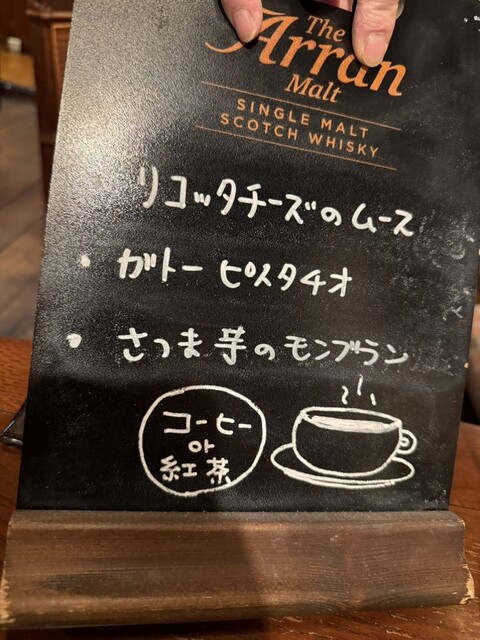 The
Arran
Malt
SINGLE MALT
SCOTCH WHISKY
リコッタチーズのムース
・ガトーピスタチオ
・さつま芋のモンブラン
コーヒー
or
紅茶